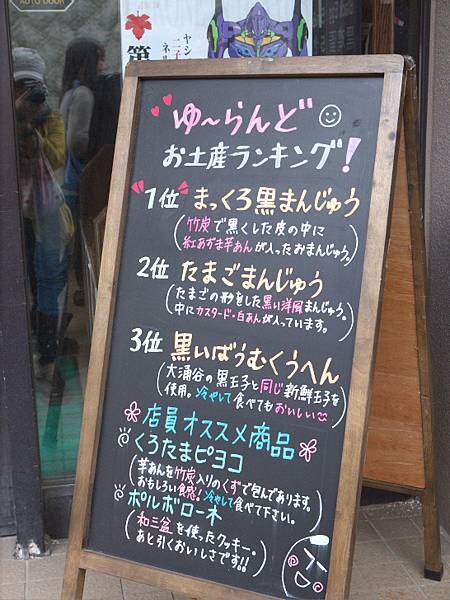 AUTO DOOR
第
ヤシ
二子
ネル
ゆ〜らんど
お土産ランキング!
1位 まっくろ黒まんじゅう
(竹炭で黒くした皮の中に
紅あずま芋あんが入ったおまんじゅう。)
2位 たまごまんじゅう
(たまごの形をした黒い洋風まんじゅう。
中にカスタード・白あんが入っています。)
3位 黒いばうむくうへん
(大涌谷の黒玉子と同じ新鮮玉子を
使用。冷やして食べてもおいしい)
店員オススメ商品
くろたまピヨコ
(芋あんを竹炭入りのくずで包んであります。
おもしろい食感!冷やして食べて下さい。)
ポルボローネ
(和三盆を使ったクッキー。
あと引くおいしさです!!)